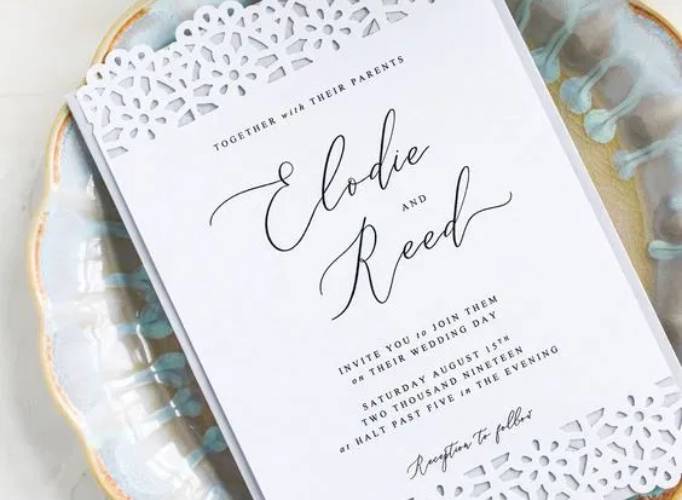 TOGETHER with THEIR PARENTS
Elodie
AND
Reed
INVITE YOU to JOIN THEM
on THEIR WEDDING DAY
SATURDAY AUGUST 15TH
TWO THOUSAND NINETEEN
at HALT PAST FIVE in THE EVENING
Reception to follow